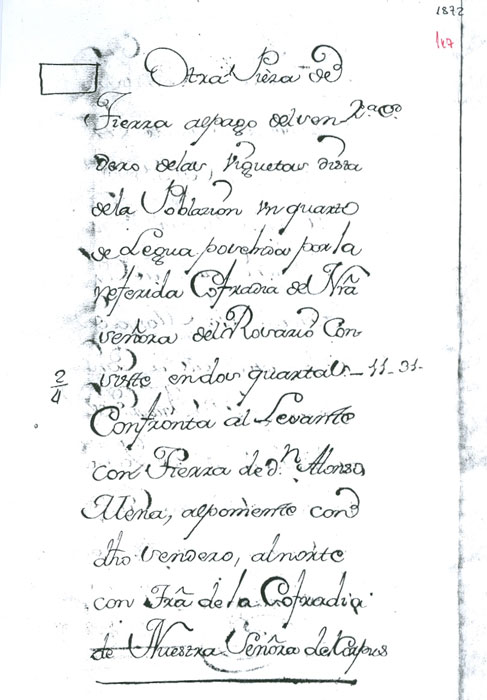 1872
117
Otra Pieza de
Tierra al pago del ven
dero de las, viquetas dista
de la Poblazion un quarto
de Legua povehida por la
referida Cofradia de Nrã
señora del Rosario Con
2/4 siste en dos quartas - 11-31-
Confronta al Levante
con Tierra de d.n Alonso
Mena, al poniente con
dho sendero, al norte
con Trã de la Cofradia
de Nuestra Señora del Corpus